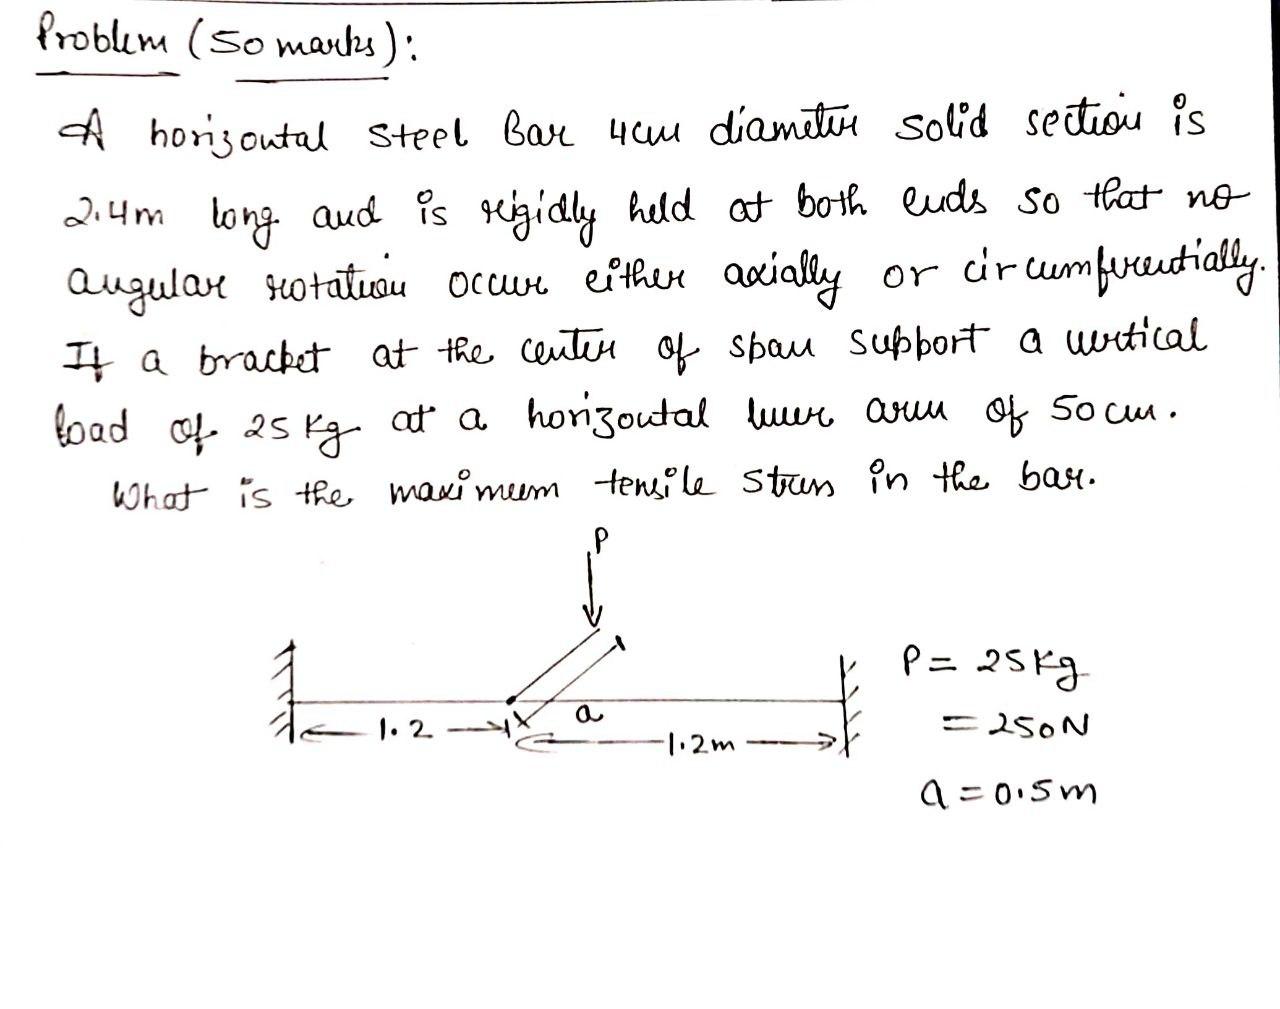 Problem (50 marks):
A horizontal steel Bar 4cm diameter solid section is
2.4m long and is rigidly held at both ends so that no
angular rotation occur either axially or circumferentially.
If a bracket at the center of span support a vertical
load of 25 kg at a horizontal lever arm of 50 cm.
What is the maximum tensile stress in the bar.
P
P = 25 kg
a
1.2
1.2m
= 250N
a = 0.5m